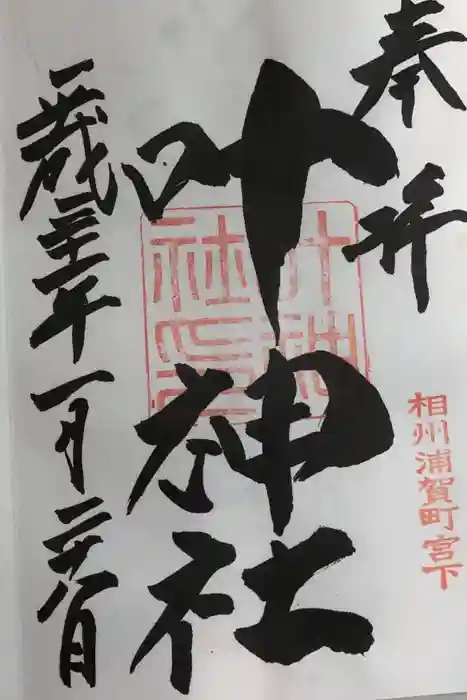 奉拝
相州浦賀町宮下
叶神社
叶神社印
平成三十一年一月二十八日